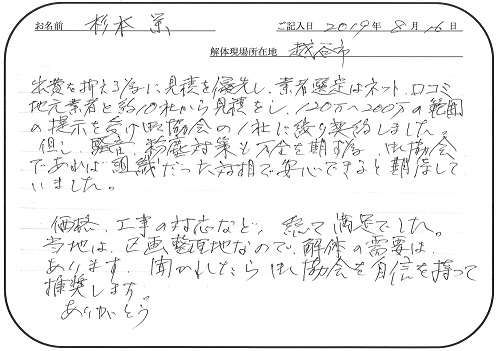 お名前 杉本 景 ご記入日 2019年 8月 16日
解体現場所在地 越谷市
出費を抑える為に見積を優先し、業者選定はネット、口コミ
地元業者と約10社から見積をし、120万〜200万の範囲
の提示を受け申し協会の1社に絞り契約しました。
但し、騒音、粉塵対策も万全を期する為、申し協会
であれば組織だった対応で安心できると期待して
いました。
価格、工事の対応など、総て満足でした。
当地は、区画整理地なので、解体の需要は
あります。聞かれたら申し協会を自信を持って
推奨します。
ありがとう